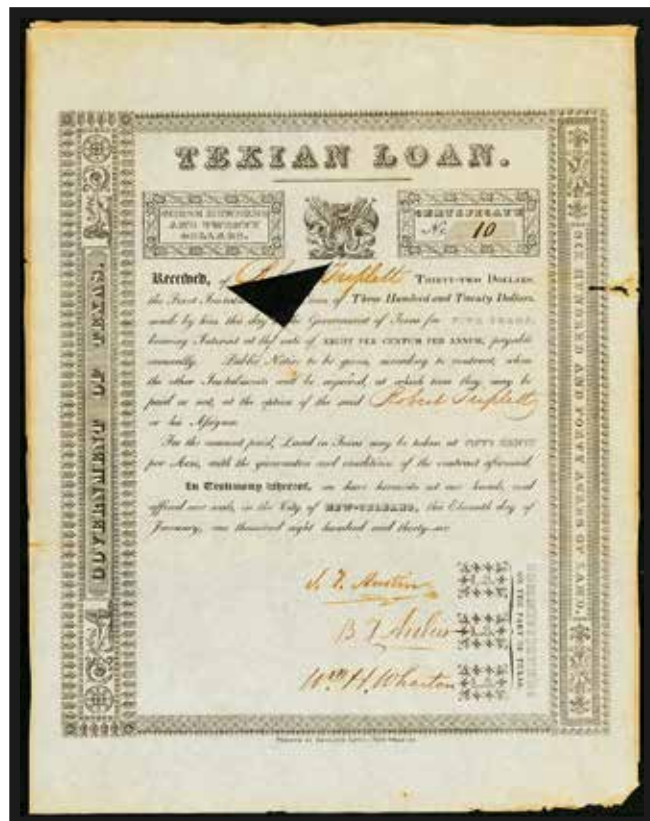 TEXIAN LOAN.
THREE HUNDRED
AND TWENTY
DOLLARS.
CERTIFICATE
No. 10
Received, of Triplett THIRTY-TWO DOLLARS,
the First of Three Hundred and Twenty Dollars,
made by him this day to the Government of Texas for FIVE YEARS,
bearing Interest at the rate of EIGHT PER CENTUM PER ANNUM, payable
annually. Public Notice to be given, according to contract, when
the other Instalments will be required, at which time they may be
paid or not, at the option of the said Robert Triplett
or his Assigns.
For the amount paid, Land in Texas may be taken at FIFTY CENTS
per Acre, with the guarantees and conditions of the contract aforesaid.
In Testimony whereof, we have hereunto set our hands, and
affixed our seals, in the City of NEW-ORLEANS, this Eleventh day of
January, one thousand eight hundred and thirty-six
S. F. Austin
B. T. Archer
Wm. H. Wharton
ON THE PART OF TEXAS
GOVERNMENT OF TEXAS.
SIX HUNDRED AND FORTY ACRES OF LAND.